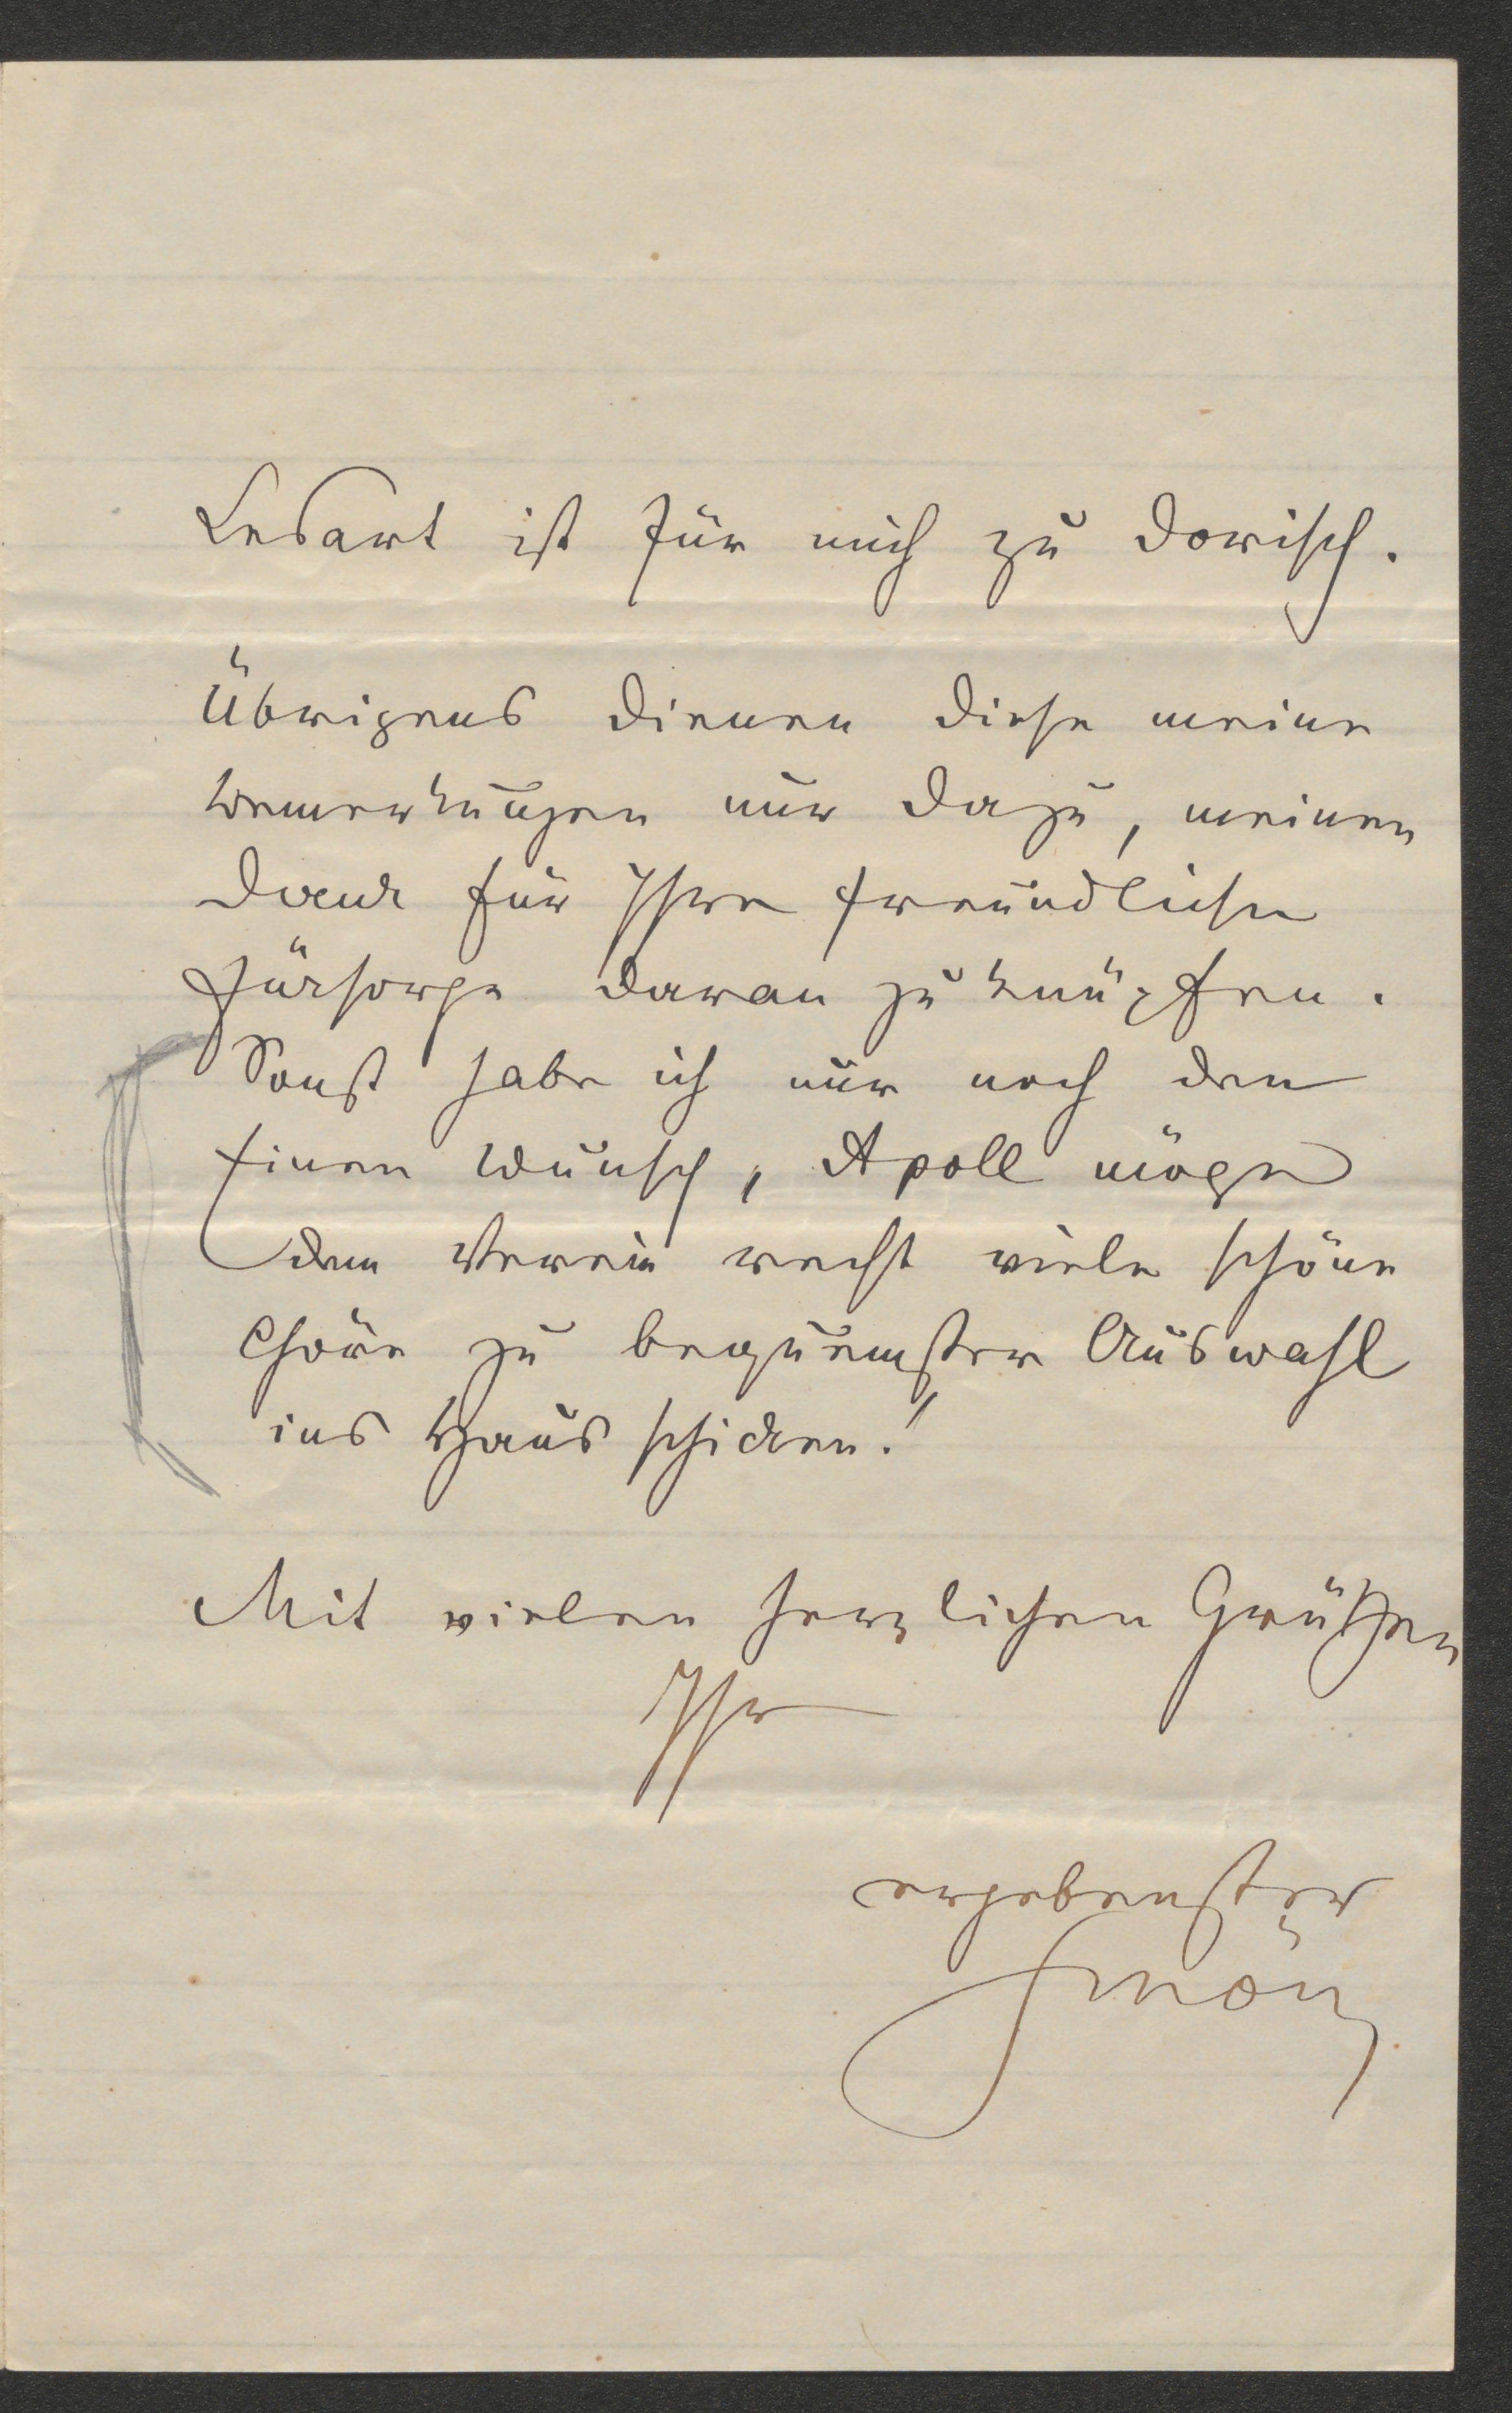 Lesart ist für mich zu dorisch.
Übrigens dienen diese meine
Bemerkungen nur dazu, meinen
Dank für Ihre freundliche
Fürsorge daran zu knüpfen.
Sonst habe ich nur noch den
einen Wunsch, Apoll möge
dem Verein recht viele schöne
Chöre zu bequemster Auswahl
ins Haus schicken!
Mit vielen herzlichen Grüßen
Ihr
ergebenster